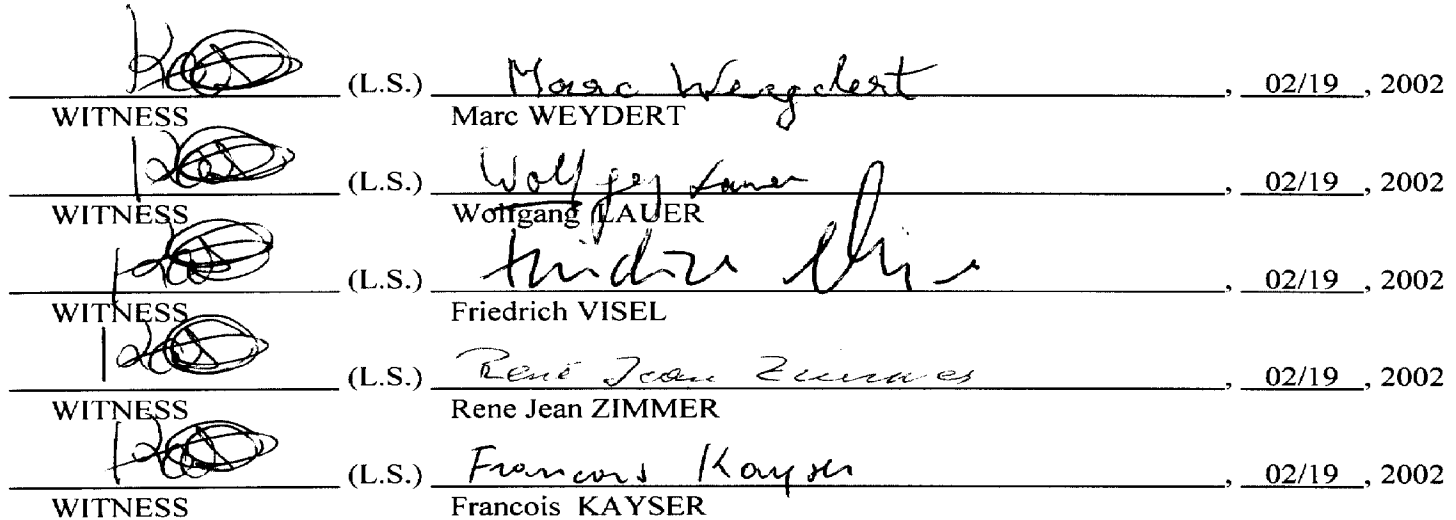 (L.S.) Marc Weydert, 02/19, 2002
WITNESS Marc WEYDERT
(L.S.) Wolfgang Lauer, 02/19, 2002
WITNESS Wolfgang LAUER
(L.S.) , 02/19, 2002
WITNESS Friedrich VISEL
(L.S.) René Jean Zimmer, 02/19, 2002
WITNESS Rene Jean ZIMMER
(L.S.) Francois Kayser, 02/19, 2002
WITNESS Francois KAYSER